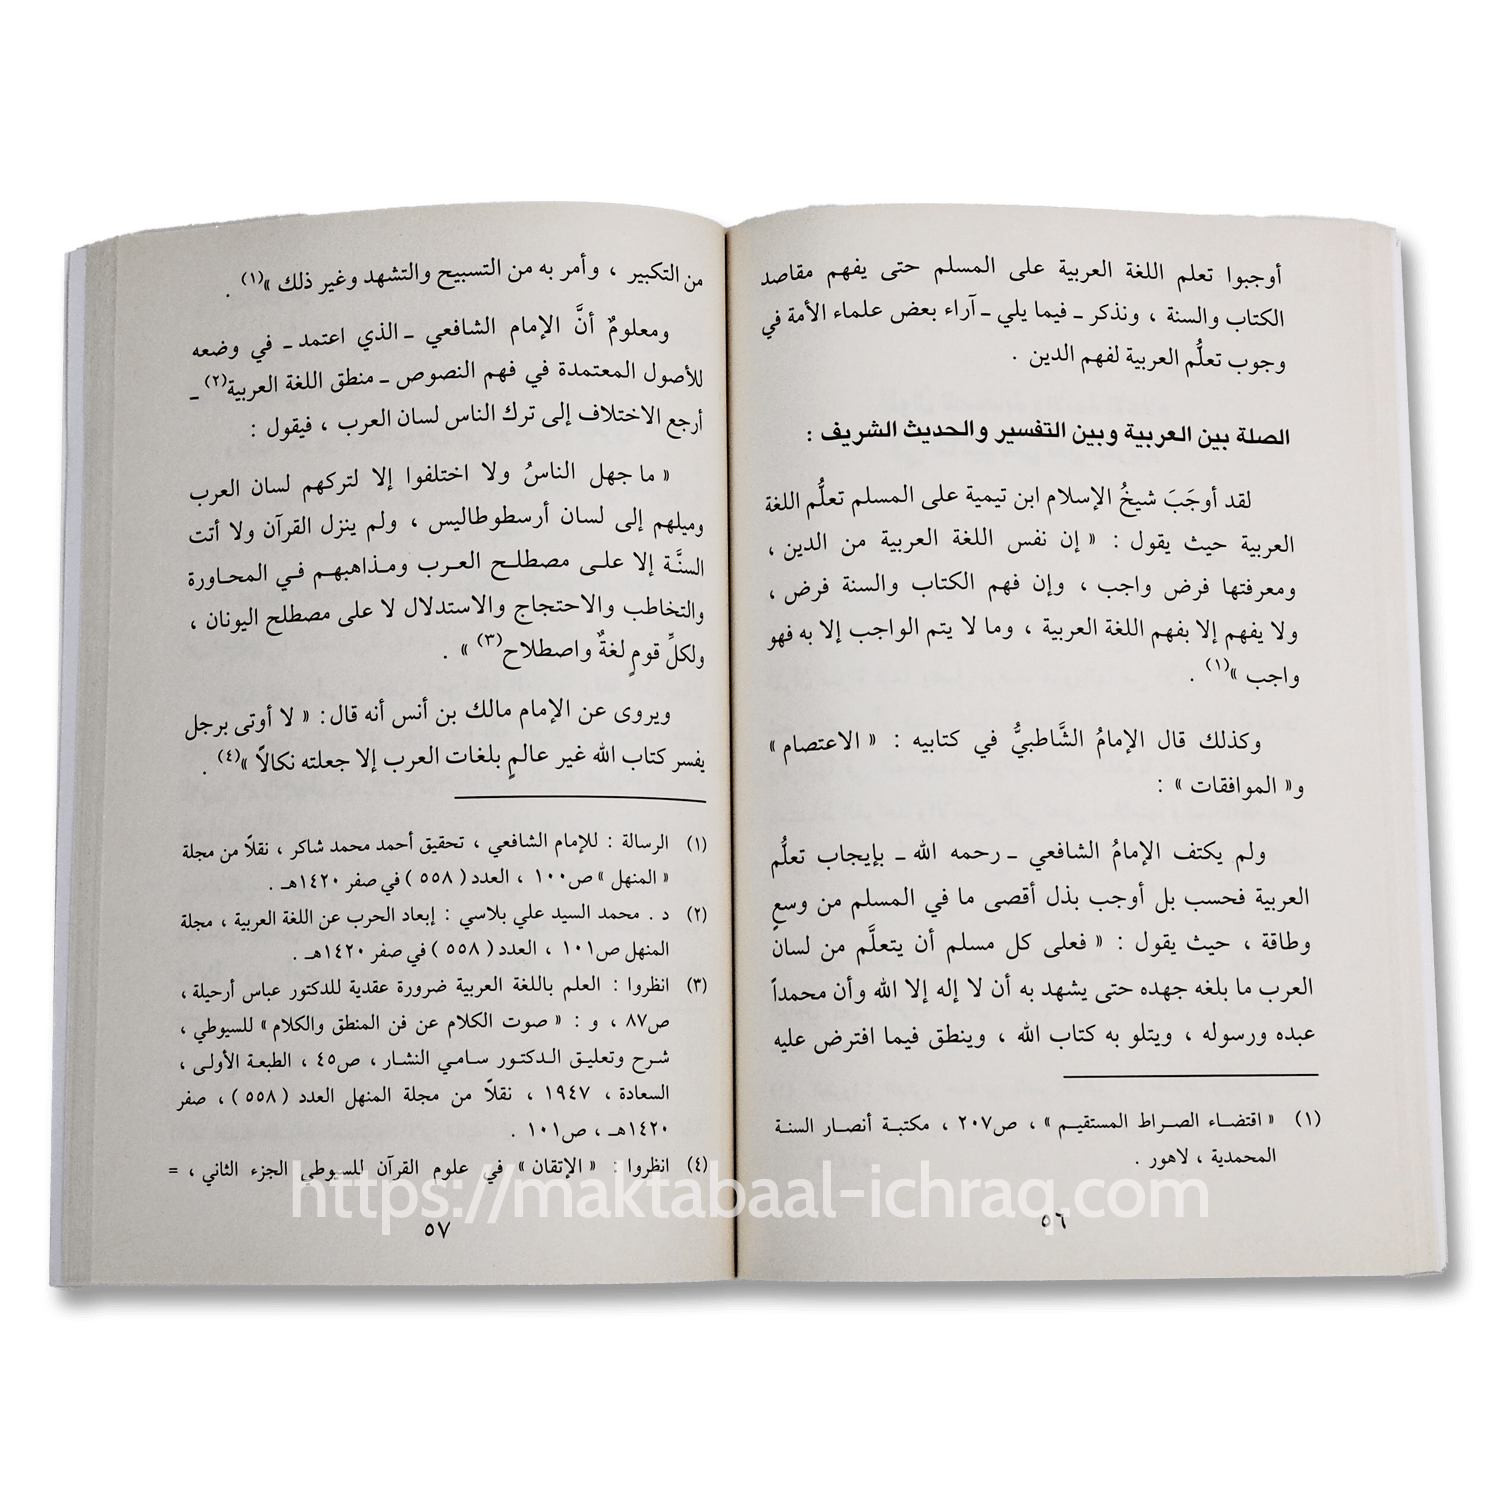 أوجبوا تعلم اللغة العربية على المسلم حتى يفهم مقاصد
الكتاب والسنة ، ونذكر ــ فيما يلي ــ آراء بعض علماء الأمة في
وجوب تعلُّم العربية لفهم الدين .
الصلة بين العربية وبين التفسير والحديث الشريف :
لقد أوجَبَ شيخُ الإسلام ابن تيمية على المسلم تعلُّم اللغة
العربية حيث يقول : « إن نفس اللغة العربية من الدين ،
ومعرفتها فرض واجب ، وإن فهم الكتاب والسنة فرض ،
ولا يفهم إلا بفهم اللغة العربية ، وما لا يتم الواجب إلا به فهو
واجب »(١) .
وكذلك قال الإمامُ الشَّاطبيُّ في كتابيه : « الاعتصام »
و« الموافقات » :
ولم يكتف الإمامُ الشافعي ــ رحمه الله ــ بإيجاب تعلُّم
العربية فحسب بل أوجب بذل أقصى ما في المسلم من وسعٍ
وطاقة ، حيث يقول : « فعلى كل مسلم أن يتعلَّم من لسان
العرب ما بلغه جهده حتى يشهد به أن لا إله إلا الله وأن محمداً
عبده ورسوله ، ويتلو به كتاب الله ، وينطق فيما افترض عليه
(١) « اقتضاء الصراط المستقيم » ، ص٢٠٧ ، مكتبة أنصار السنة
المحمدية ، لاهور .
٥٦
من التكبير ، وأمر به من التسبيح والتشهد وغير ذلك »(١) .
ومعلومٌ أنَّ الإمام الشافعي ــ الذي اعتمد ــ في وضعه
للأصول المعتمدة في فهم النصوص ــ منطق اللغة العربية(٢) ــ
أرجع الاختلاف إلى ترك الناس لسان العرب ، فيقول :
« ما جهل الناسُ ولا اختلفوا إلا لتركهم لسان العرب
وميلهم إلى لسان أرسطوطاليس ، ولم ينزل القرآن ولا أتت
السنَّة إلا على مصطلح العرب ومذاهبهم في المحاورة
والتخاطب والاحتجاج والاستدلال لا على مصطلح اليونان ،
ولكلِّ قومٍ لغةٌ واصطلاح(٣) » .
ويروى عن الإمام مالك بن أنس أنه قال : « لا أوتى برجل
يفسر كتاب الله غير عالمٍ بلغات العرب إلا جعلته نكالاً »(٤) .
(١) الرسالة : للإمام الشافعي ، تحقيق أحمد محمد شاكر ، نقلاً من مجلة
« المنهل » ص١٠٠ ، العدد ( ٥٥٨ ) في صفر ١٤٢٠هـ .
(٢) د . محمد السيد علي بلاسي : إبعاد الحرب عن اللغة العربية ، مجلة
المنهل ص١٠١ ، العدد ( ٥٥٨ ) في صفر ١٤٢٠هـ .
(٣) انظروا : العلم باللغة العربية ضرورة عقدية للدكتور عباس أرحيلة ،
ص٨٧ ، و : « صوت الكلام عن فن المنطق والكلام » للسيوطي ،
شرح وتعليق الدكتور سامي النشار ، ص٤٥ ، الطبعة الأولى ،
السعادة ، ١٩٤٧ ، نقلاً من مجلة المنهل العدد ( ٥٥٨ ) ، صفر
١٤٢٠هـ ، ص١٠١ .
(٤) انظروا : « الإتقان » في علوم القرآن للسيوطي الجزء الثاني ، =
٥٧
https://maktabaal-ichraq.com